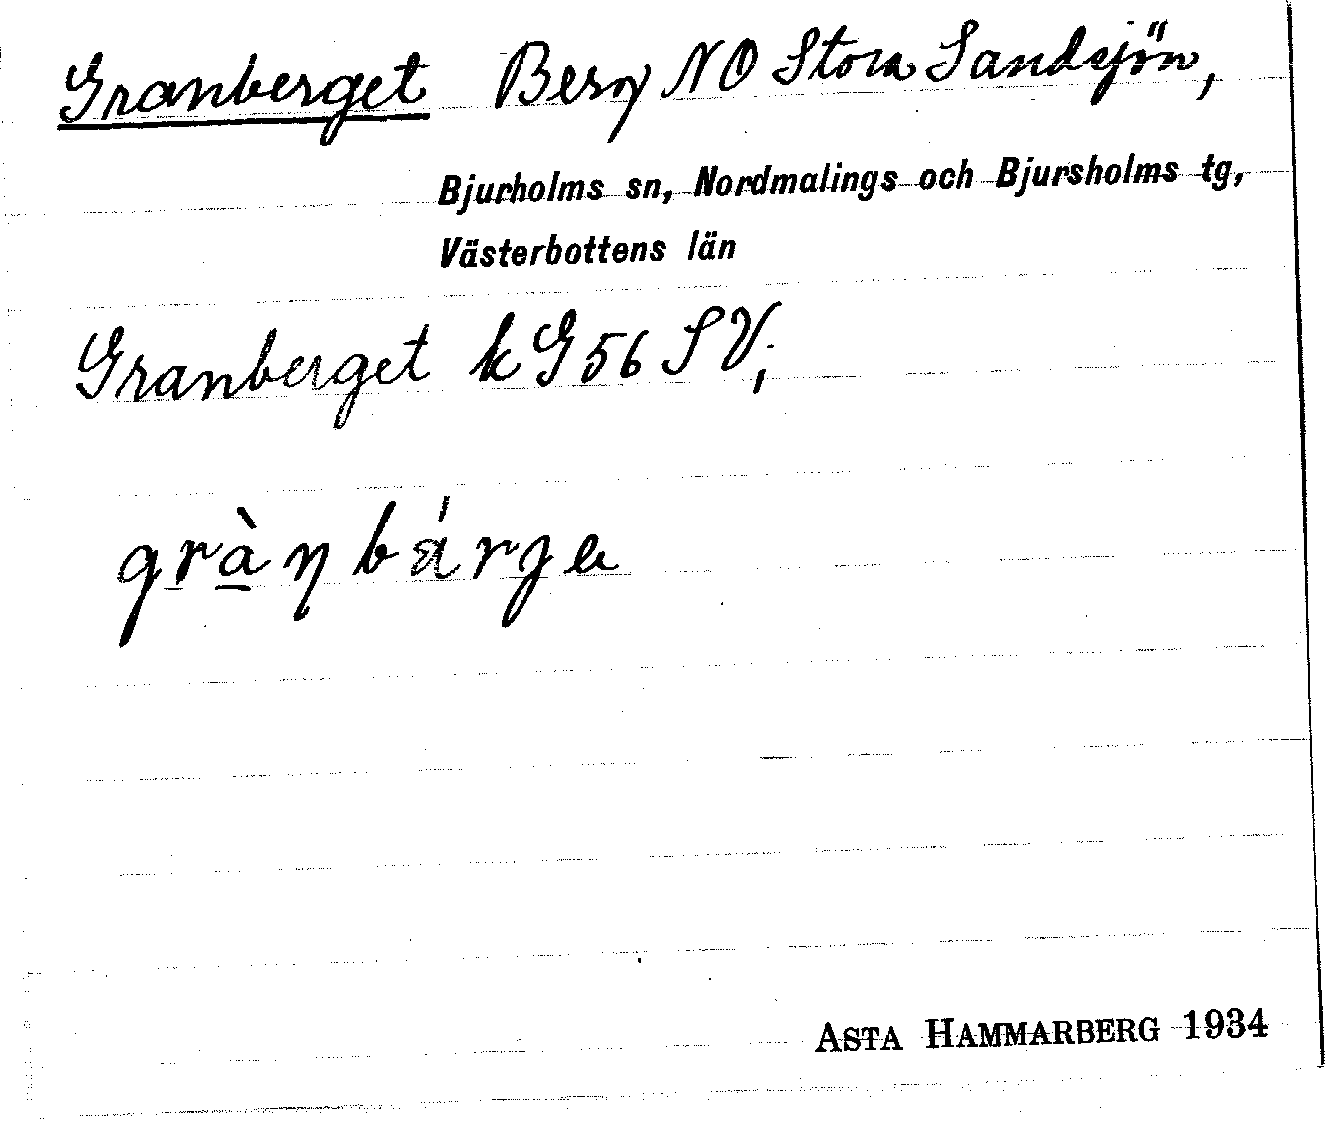 Granberget Berg NO Stora Sandsjön,
Bjurholms sn, Nordmalings och Bjursholms tg,
Västerbottens län
Granberget k G 56 SV,
gràn bárga
ASTA HAMMARBERG 1934